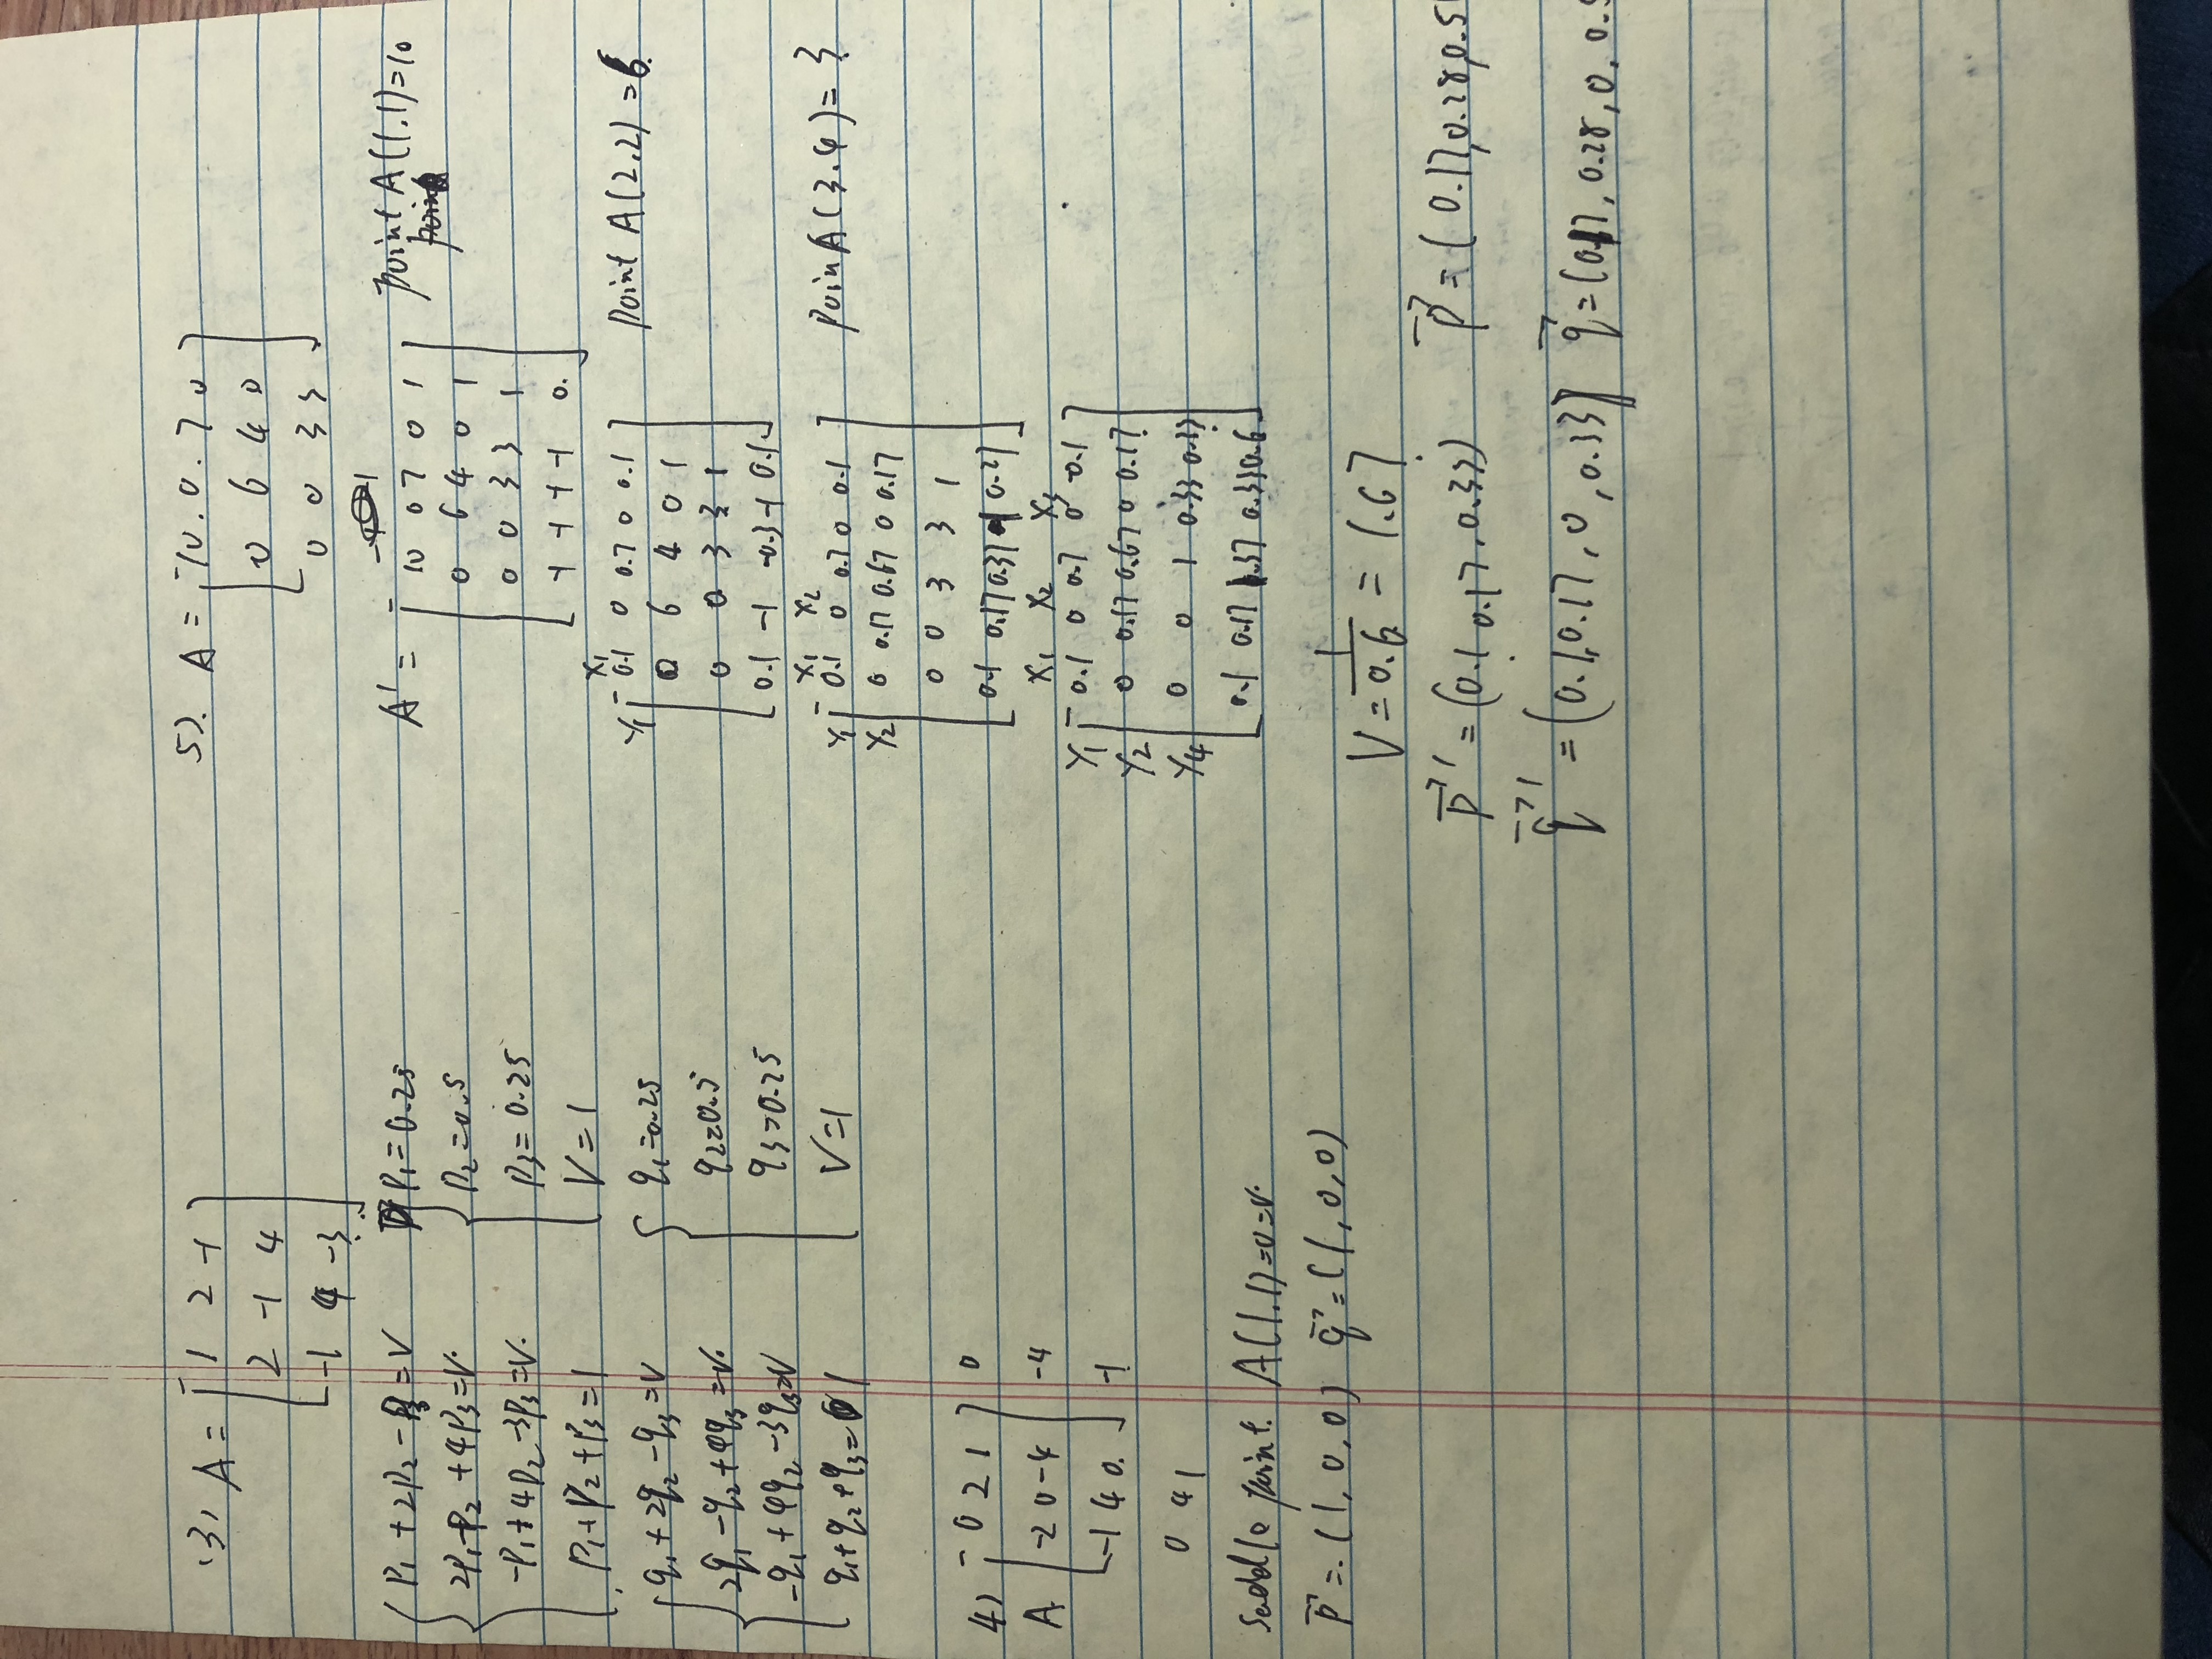 (3) A = [ 1 2 -1
2 -1 4
-1 4 -3 ]
P₁ + 2P₂ - P₃ = V
2P₁ - P₂ + 4P₃ = V.
-P₁ + 4P₂ - 3P₃ = V.
P₁ + P₂ + P₃ = 1
P₁ = 0.25
P₂ = 0.5
P₃ = 0.25
V = 1
q₁ + 2q₂ - q₃ = V
2q₁ - q₂ + 4q₃ = V.
-q₁ + 4q₂ - 3q₃ = V
q₁ + q₂ + q₃ = 1
q₁ = 0.25
q₂ = 0.5
q₃ = 0.25
V = 1
4) [ 0 2 1 ] 0
A -2 0 -4 -4
-1 4 0. -1
0 4 1
Saddle point. A(1.1) = 0 = V.
p⃗ = (1, 0, 0) q⃗ = (1, 0, 0)
5). A = [ 10. 0. 7 0
0 6 4 0
0 0 3 3 ]
A' = [ 10 0 7 0 1 point A(1.1) = 10
0 6 4 0 1
0 0 3 3 1
-1 -1 -1 -1 0. ]
X₁
Y₁ 0.1 0 0.7 0 0.1 point A(2.2) = 6.
0 6 4 0 1
0 0 3 3 1
0.1 -1 -0.3 -1 0.1
X₁ X₂
Y₁ 0.1 0 0.7 0 0.1 poin A(3.4) = 3
Y₂ 0 0.17 0.67 0 0.17
0 0 3 3 1
0.1 0.17 0.37 -1 0.27
X₁ X₂ X₃
Y₁ 0.1 0 0.7 0 0.1
Y₂ 0 0.17 0.67 0 0.17
Y₄ 0 0 1 0.33 0.33
0.1 0.17 1.37 0.33 0.6
V = 1/0.6 = 1.67
p⃗' = (0.1 0.17, 0.33) p⃗ = (0.17, 0.28, 0.5
q⃗' = (0.1, 0.17, 0, 0.33) q⃗ = (0.17, 0.28, 0, 0.5